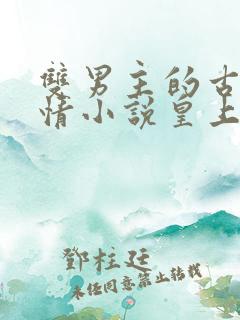 雙男主的古
情小說皇上
鄧柱廷
未經同意禁止轉載